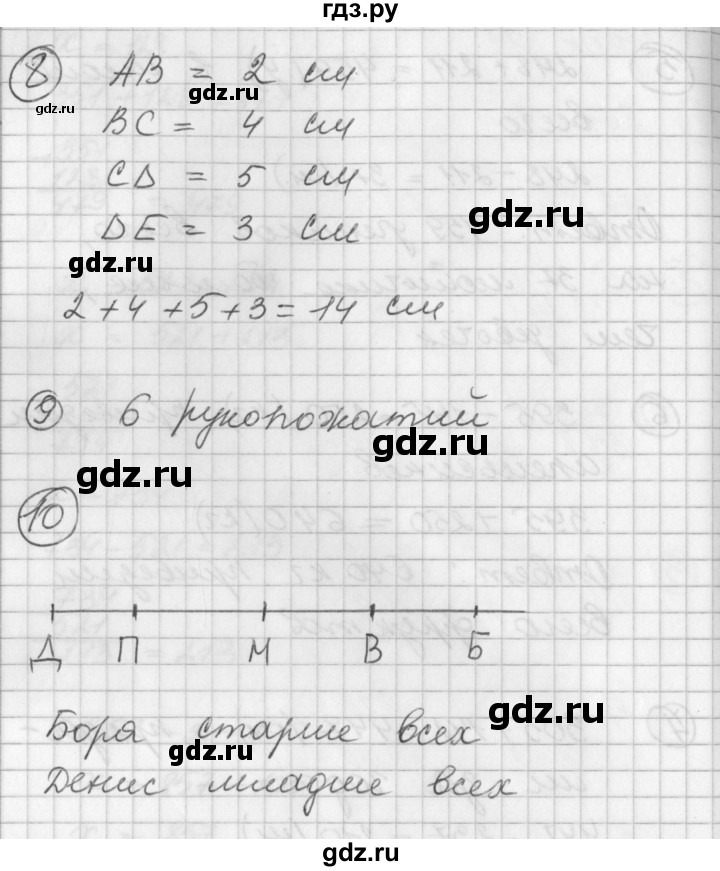 гдз.ру
8 AB = 2 см
gdz.ru
gdz.ru
BC = 4 см
CD = 5 см
gdz.ru
DE = 3 см
gdz.ru
2 + 4 + 5 + 3 = 14 см
9 6 рукопожатий
gdz.ru
gdz.ru
10
Д П М В Б
gdz.ru
Боря старше всех
gdz.ru
Денис младше всех
gdz.ru